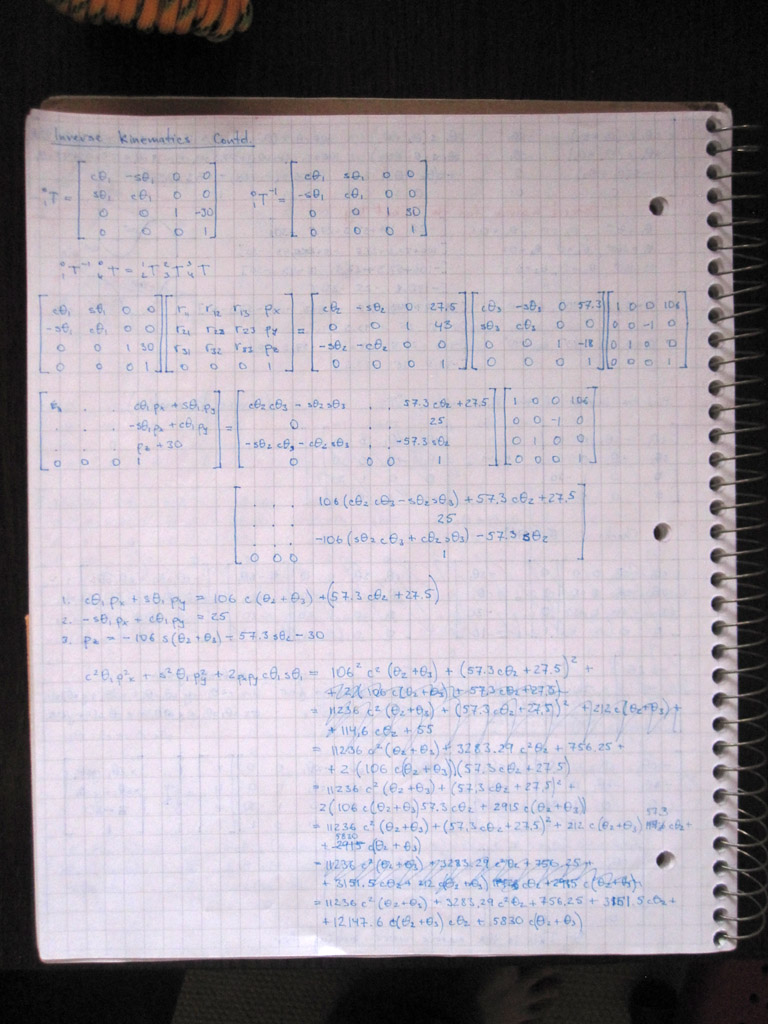 Inverse Kinematics Contd.
⁰₁T = [ cθ₁ -sθ₁ 0 0 ; sθ₁ cθ₁ 0 0 ; 0 0 1 -30 ; 0 0 0 1 ]   ⁰₁T⁻¹ = [ cθ₁ sθ₁ 0 0 ; -sθ₁ cθ₁ 0 0 ; 0 0 1 30 ; 0 0 0 1 ]
⁰₁T⁻¹ ⁰₄T = ¹₂T ²₃T ³₄T
[ cθ₁ sθ₁ 0 0 ; -sθ₁ cθ₁ 0 0 ; 0 0 1 30 ; 0 0 0 1 ] [ r₁₁ r₁₂ r₁₃ px ; r₂₁ r₂₂ r₂₃ py ; r₃₁ r₃₂ r₃₃ pz ; 0 0 0 1 ] = [ cθ₂ -sθ₂ 0 27.5 ; 0 0 1 43 ; -sθ₂ -cθ₂ 0 0 ; 0 0 0 1 ] [ cθ₃ -sθ₃ 0 57.3 ; sθ₃ cθ₃ 0 0 ; 0 0 1 -18 ; 0 0 0 1 ] [ 1 0 0 106 ; 0 0 -1 0 ; 0 1 0 0 ; 0 0 0 1 ]
[ . . . cθ₁px + sθ₁py ; . . . -sθ₁px + cθ₁py ; . . . pz + 30 ; 0 0 0 1 ] = [ cθ₂cθ₃ - sθ₂sθ₃ . . 57.3cθ₂ + 27.5 ; 0 . . 25 ; -sθ₂cθ₃ - cθ₂sθ₃ . . -57.3sθ₂ ; 0 0 0 1 ] [ 1 0 0 106 ; 0 0 -1 0 ; 0 1 0 0 ; 0 0 0 1 ]
[ . . . 106(cθ₂cθ₃ - sθ₂sθ₃) + 57.3cθ₂ + 27.5 ; . . . 25 ; . . . -106(sθ₂cθ₃ + cθ₂sθ₃) - 57.3sθ₂ ; 0 0 0 1 ]
1. cθ₁px + sθ₁py = 106 c(θ₂+θ₃) + (57.3cθ₂ + 27.5)
2. -sθ₁px + cθ₁py = 25
3. pz = -106 s(θ₂+θ₃) - 57.3sθ₂ - 30
c²θ₁p²x + s²θ₁p²y + 2pxpycθ₁sθ₁ = 106² c²(θ₂+θ₃) + (57.3cθ₂ + 27.5)² +
+ (2)(106 c(θ₂+θ₃) + 57.3cθ₂ + 27.5)
= 11236 c²(θ₂+θ₃) + (57.3cθ₂ + 27.5)² + 212 c(θ₂+θ₃) +
+ 114.6 cθ₂ + 55
= 11236 c²(θ₂+θ₃) + 3283.29 c²θ₂ + 756.25 +
+ 2(106 c(θ₂+θ₃))(57.3cθ₂ + 27.5)
= 11236 c²(θ₂+θ₃) + (57.3cθ₂ + 27.5)² +
2(106 c(θ₂+θ₃)57.3cθ₂ + 2915 c(θ₂+θ₃))
= 11236 c²(θ₂+θ₃) + (57.3cθ₂ + 27.5)² + 212 c(θ₂+θ₃) 57.3 cθ₂ +
+ 5830 c(θ₂+θ₃)
= 11236 c²(θ₂+θ₃) + 3283.29 c²θ₂ + 756.25 +
+ 3151.5cθ₂ + 212 c(θ₂+θ₃) cθ₂ + 2915 c(θ₂+θ₃)
= 11236 c²(θ₂+θ₃) + 3283.29 c²θ₂ + 756.25 + 3151.5cθ₂ +
+ 12147.6 c(θ₂+θ₃) cθ₂ + 5830 c(θ₂+θ₃)